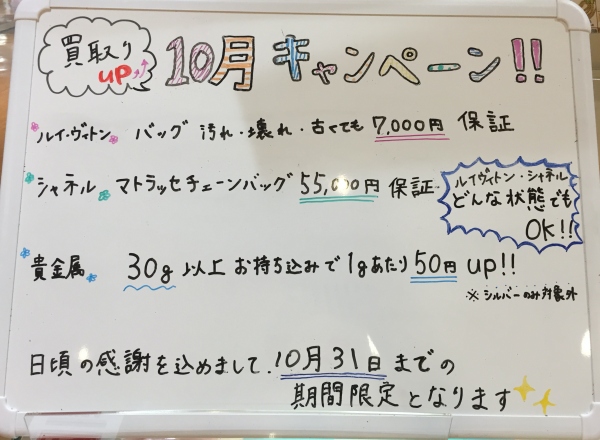 買取り
UP↑↑
10月 キャンペーン!!
ルイ・ヴィトン バッグ 汚れ・壊れ・古くても 7,000円 保証
シャネル マトラッセチェーンバッグ 55,000円 保証
ルイヴィトン・シャネル
どんな状態でも
OK!!
貴金属 30g以上お持ち込みで1gあたり50円 UP!!
※シルバーのみ対象外
日頃の感謝を込めまして.10月31日までの
期間限定となります